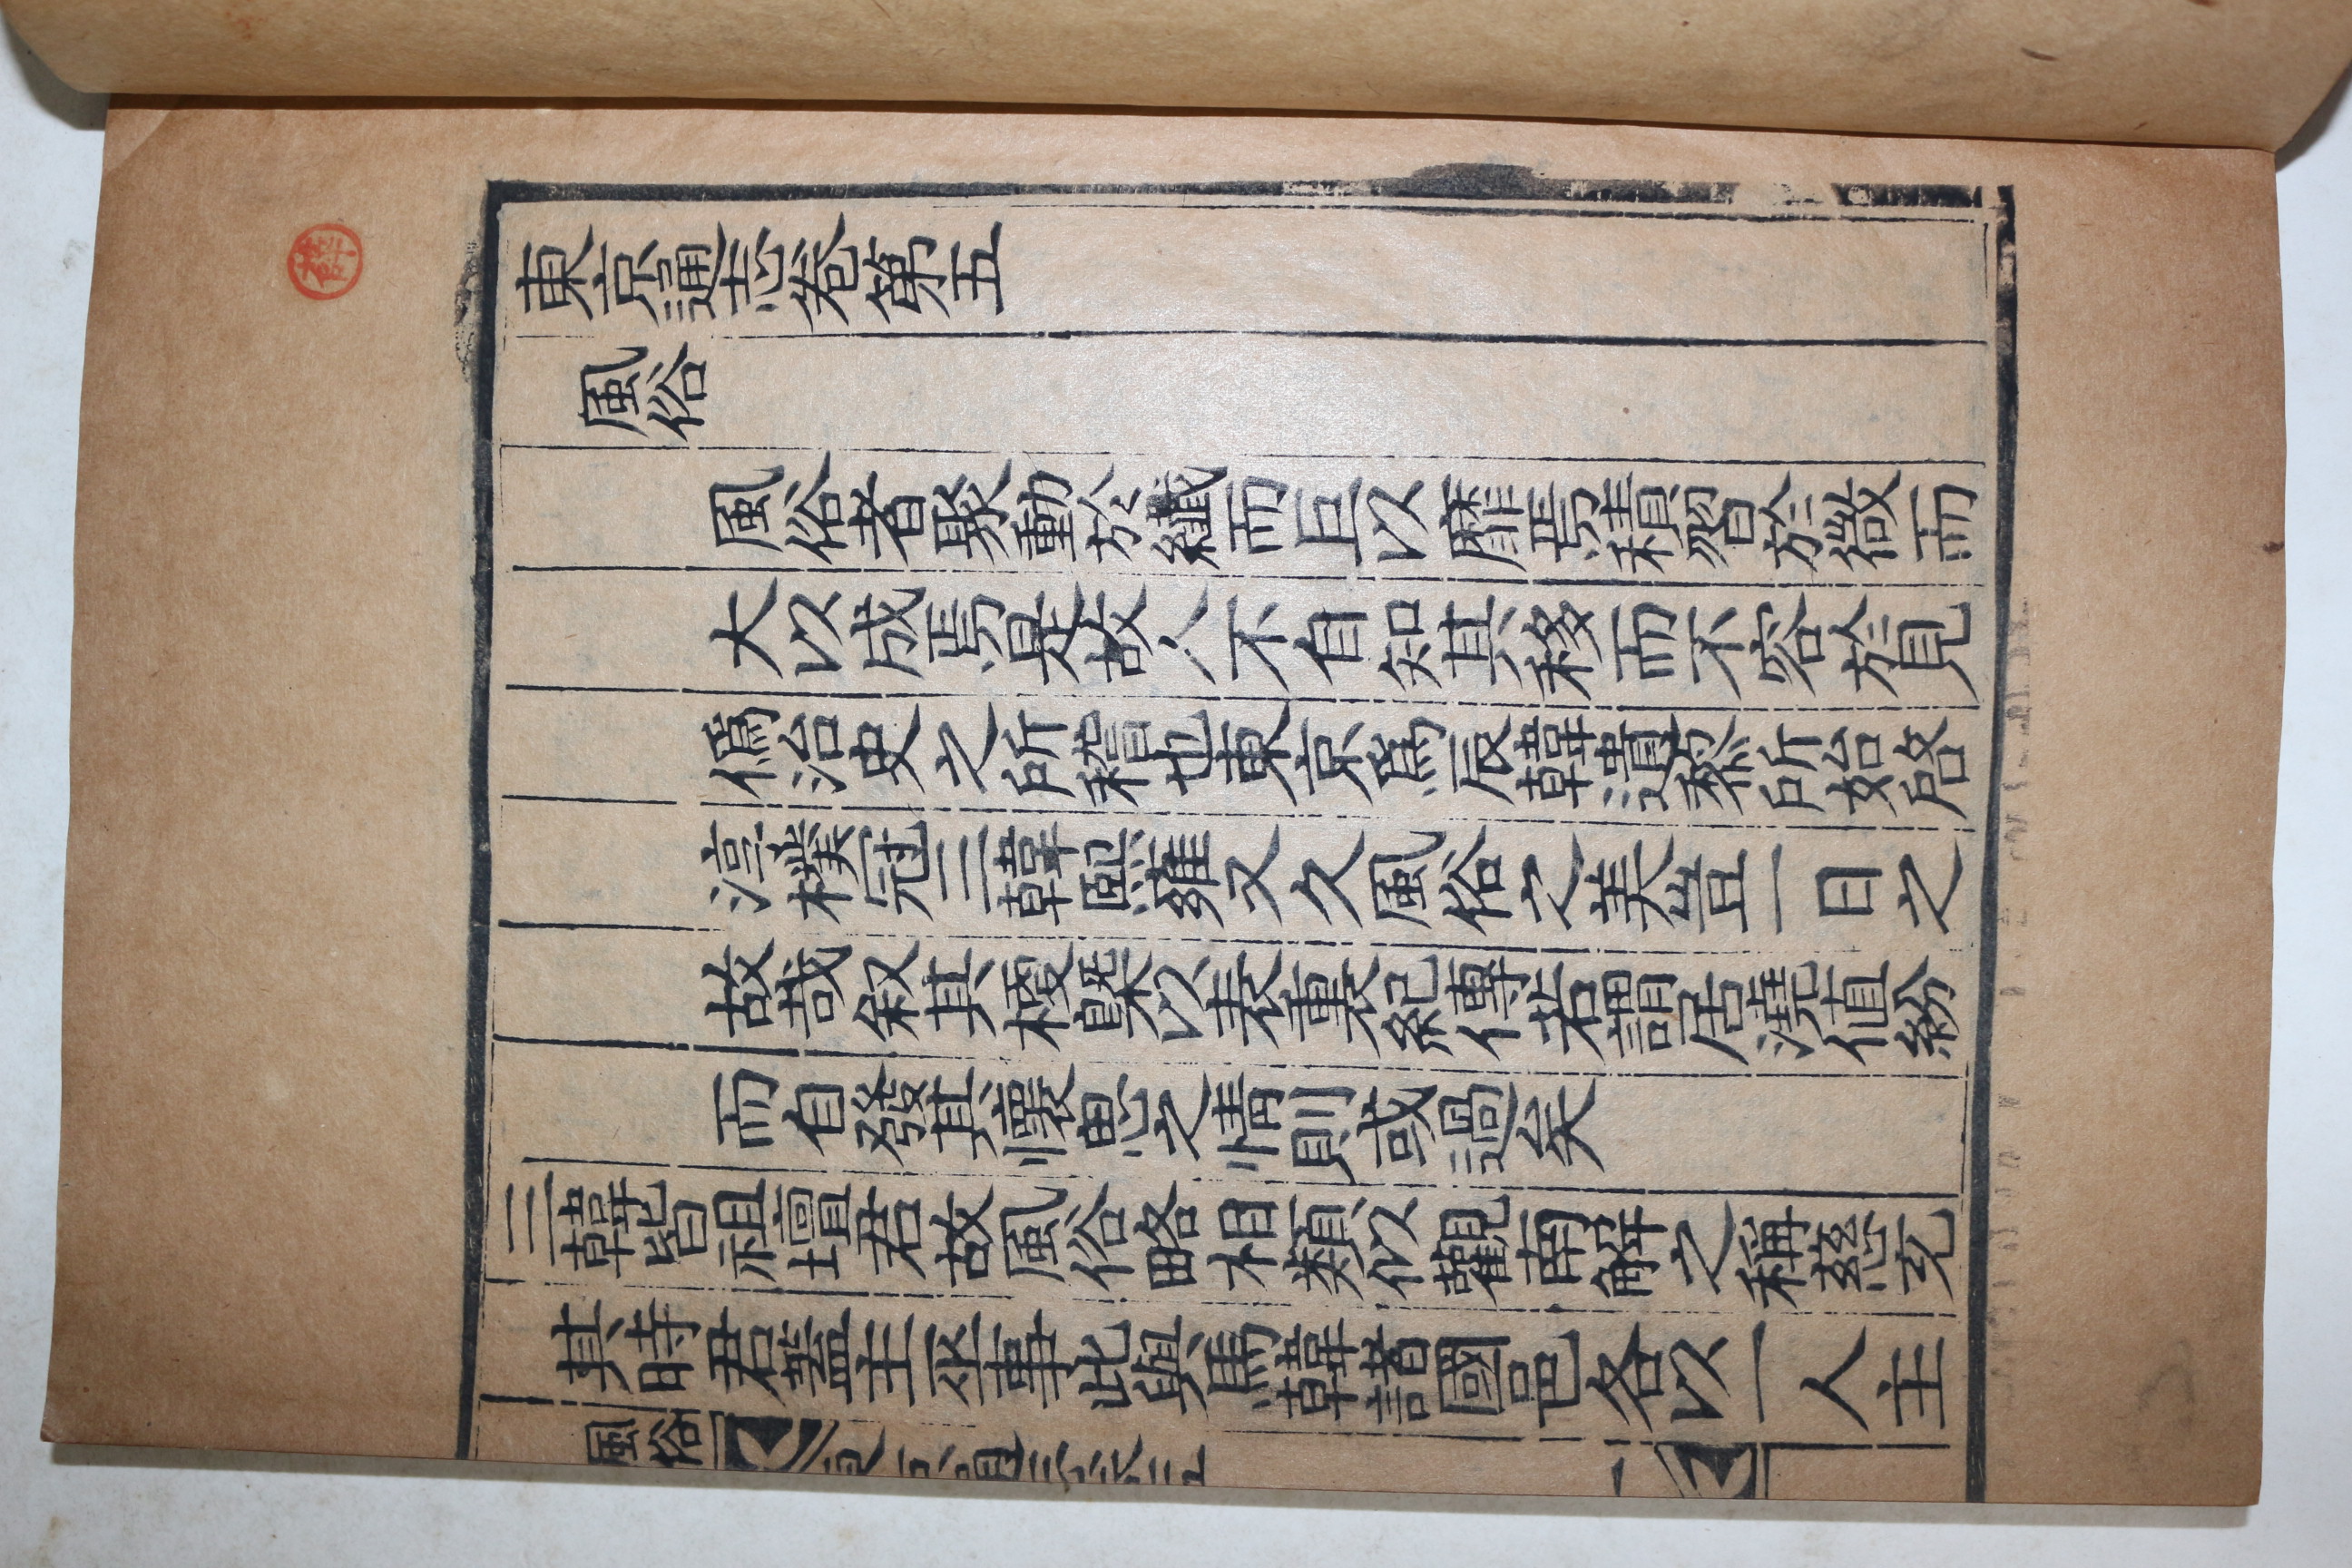 東京通志卷第五
風俗
風俗者聚動於纖而巨以靡焉積習於微而
大以成焉是故人不自知其移而不容於見
僞治史之所稽也東京爲辰韓遺黎所始啓
淳樸冠三韓熙雍又久風俗之美豈一日之
故哉叙其梗槩以表裏紀傳若謂居澆値紛
而自發其懷思之情則或過矣
三韓皆祖壇君故風俗略相類似觀南解之稱慈充
其時君蓋主巫事此與馬韓諸國邑各以一人主
風俗
東京通志卷五
一
薛